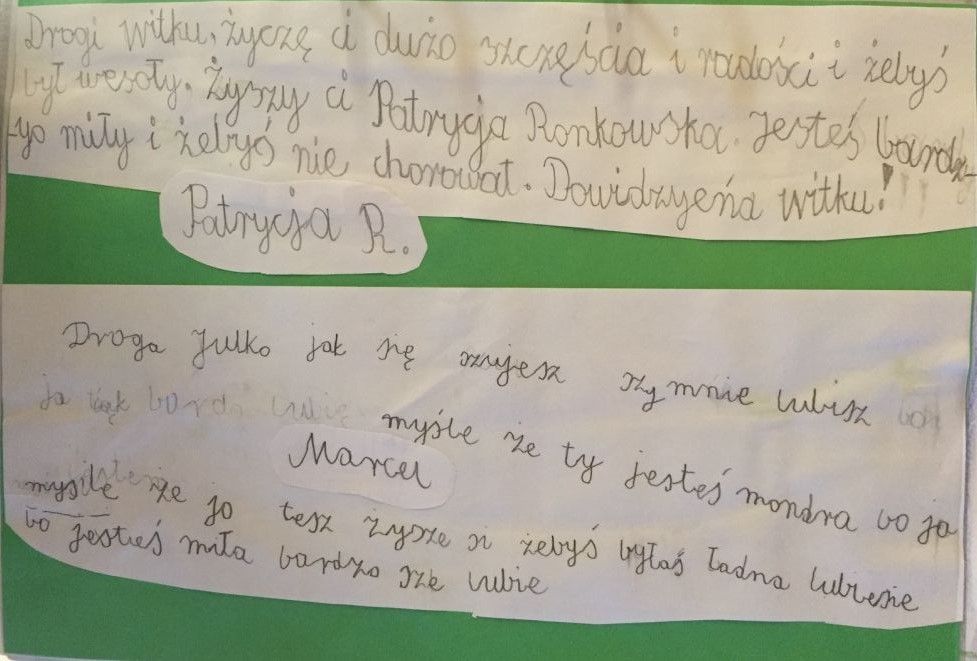 Drogi witku, życzę ci dużo szczęścia i radości i żebyś
był wesoły. Żyszy ci Patrycja Ronkowska. Jesteś bardz-
-yo miły i żebyś nie chorował. Dowidzyeńa witku!
Patrycja R.
Droga Julko jak się szujesz szy mnie lubisz bo
ja tak bardo lubię myśle że ty jesteś mondra bo ja
Marcel
myśle że jo tesz żysze si żebyś byłaś ładna lubiesie
bo jesteś miła bardzo sze lubie